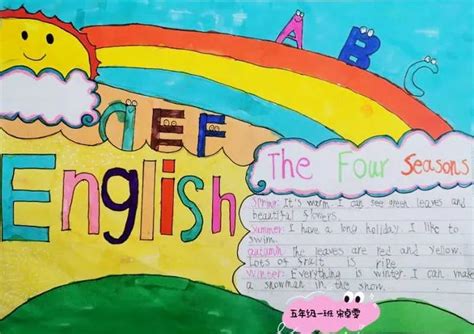 A B C
d E F
English
The Four Seasons
Spring: It's warm. I can see green leaves and
beautiful flowers.
Summer: I have a long holiday. I like to
swim.
autumn: The leaves are Red and Yellow.
Lots of fruit is ripe
Winter: Everything is winter. I can make
a snowman in the snow.
五年级一班 宋卓雯